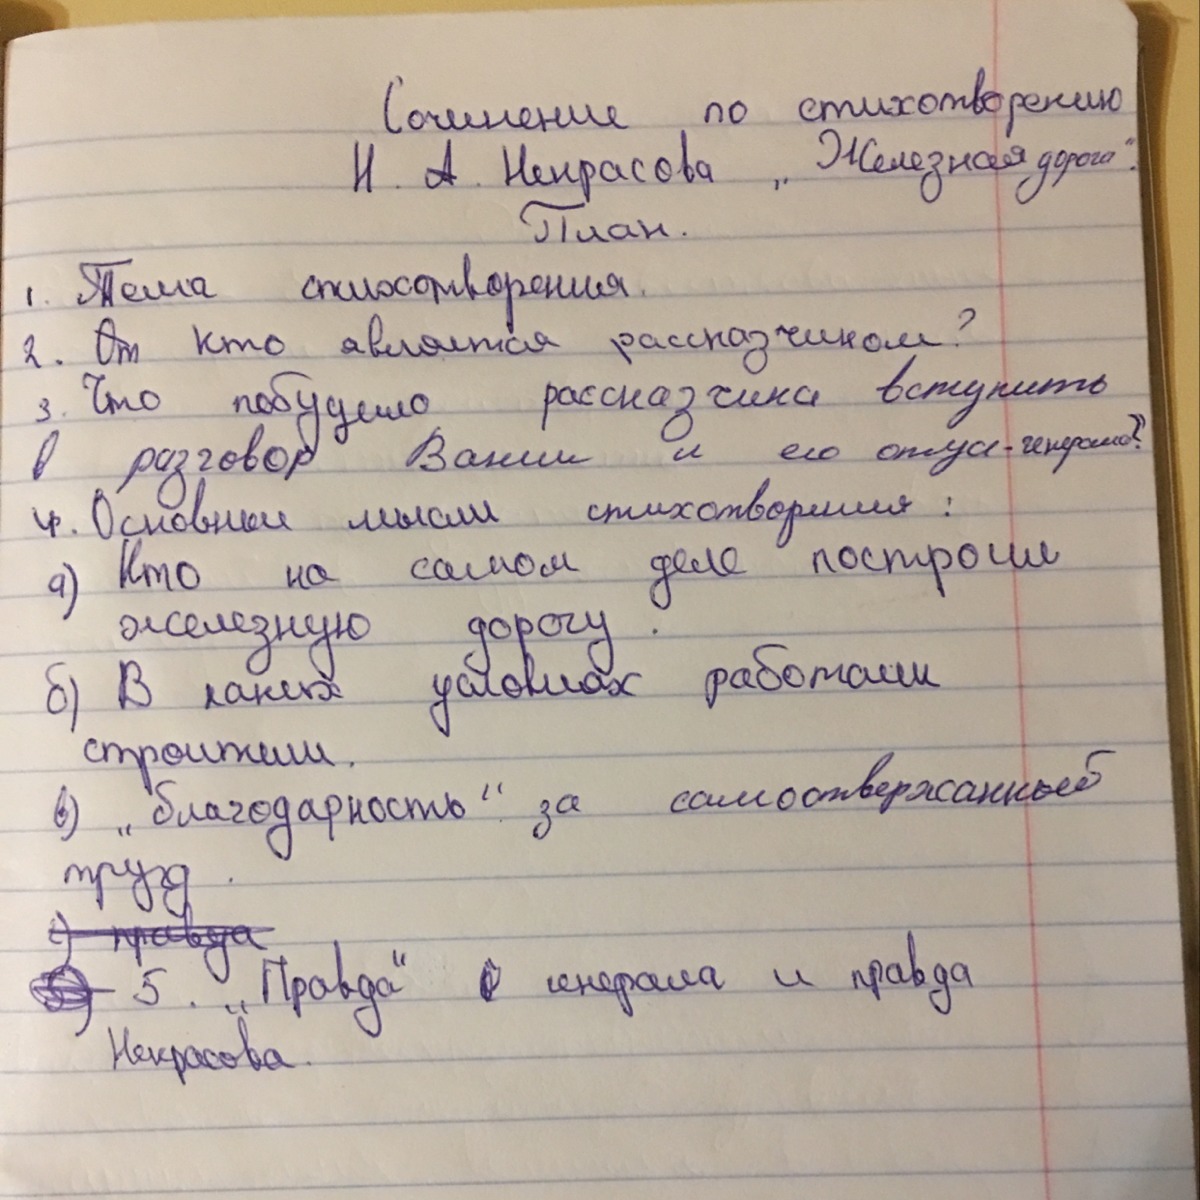 Сочинение по стихотворению
Н. А. Некрасова „Железная дорога".
План.
1. Тема стихотворения.
2. От кто является рассказчиком?
3. Что побудило рассказчика вступить
в разговор Вани и его отца-генерала?
4. Основные мысли стихотворения:
а) Кто на самом деле построил
железную дорогу.
б) В каких условиях работали
строители.
в) „благодарность" за самоотвержанный
труд.
г) правда
5. „Правда" генерала и правда
Некрасова.